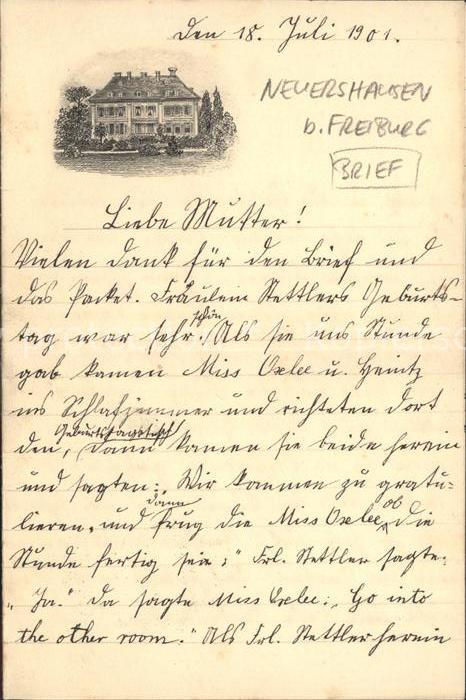 Den 18. Juli 1901.
NEUERSHAUSEN
b. FREIBURG
BRIEF
Liebe Mutter!
Vielen Dank für den Brief und
das Packet. Fräulein Stettlers Geburts-
tag war sehr schön. Als sie uns Stunde
gab kamen Miss Oxlee u. Heintz
ins Schlafzimmer und richteten dort
den Geburtstagstisch, dann kamen sie beide herein
und sagten: „Wir kommen zu gratu-
lieren, und dann frug die Miss Oxlee, ob die
Stunde fertig sei;" Frl. Stettler sagte:
„Ja." Da sagte Miss Oxlee: „Go into
the other room." Als Frl. Stettler herein